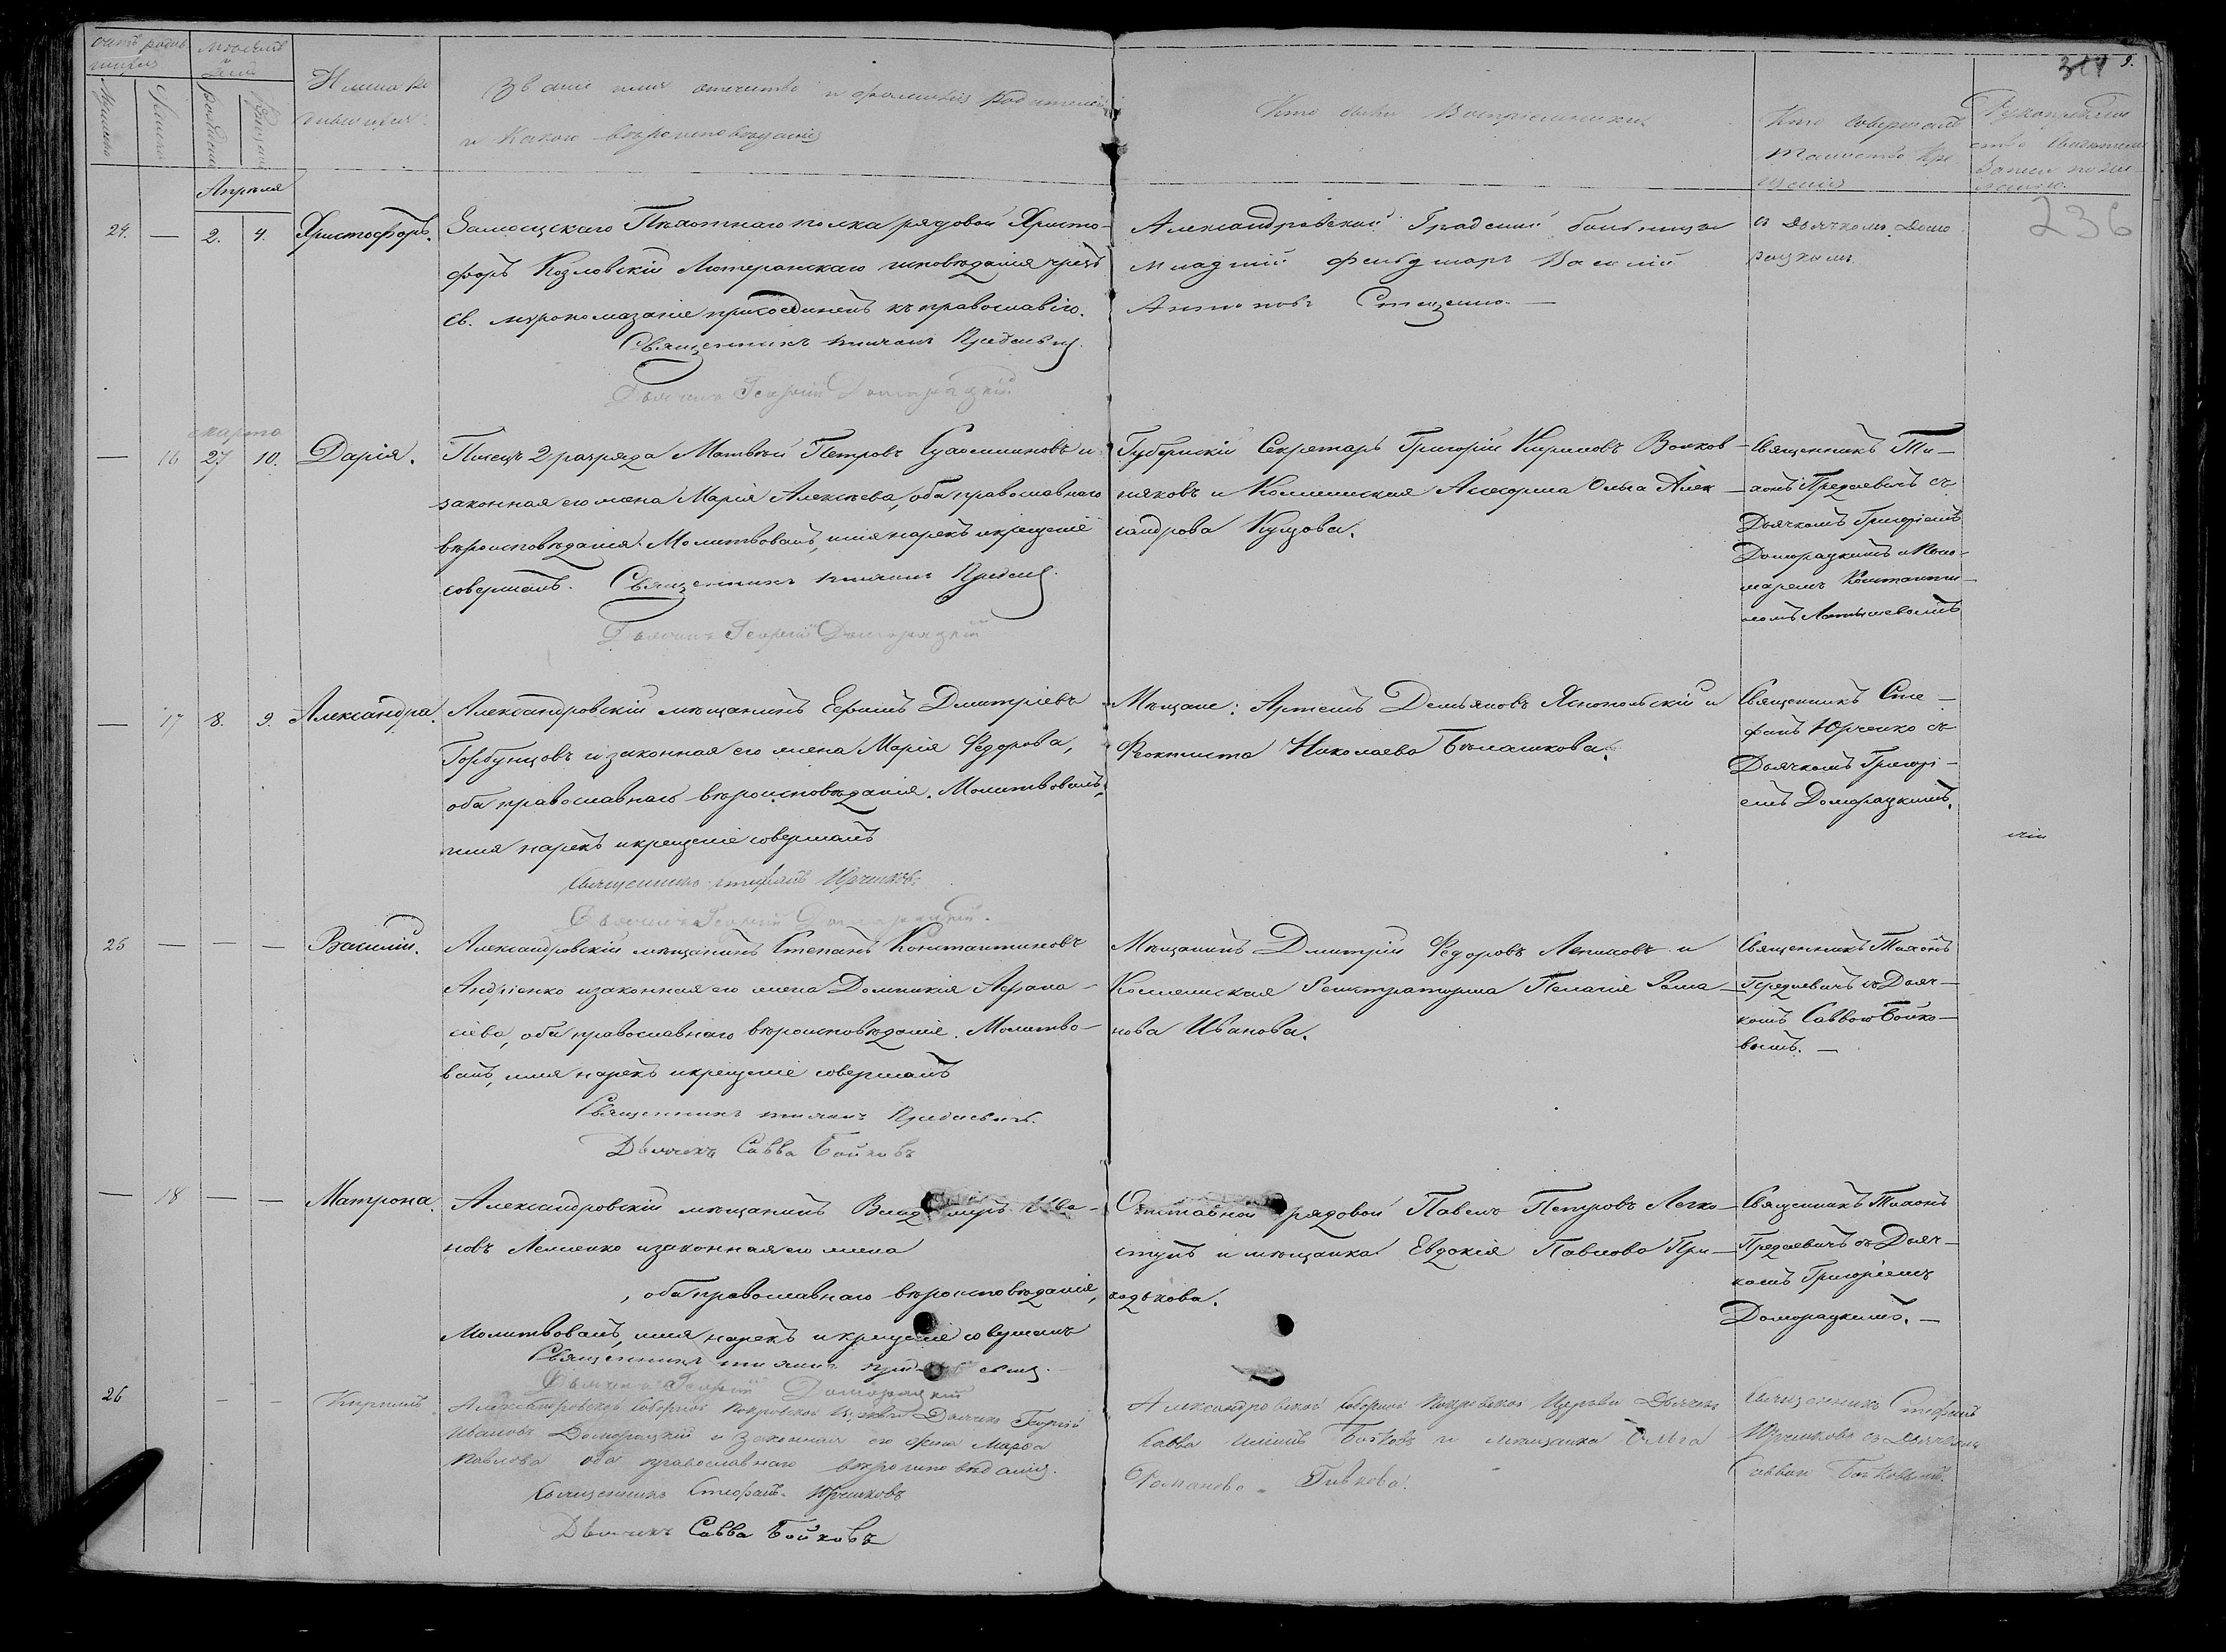 Счетъ родив
шихся
Мѣсяцъ
и день
Имена ро
дившихся.
Званіе имя отчество и фамилія родителей
и какого вѣроисповѣданія
Мужеска
Женска
рожденія
крещенія
Кто были воспріемники
Кто совершалъ
таинство кре
щенія
Рукоприклад
ство свидѣтелей
записи по же-
ланію.
9.
236
Апрѣля
24. — 2. 4. Христофоръ.
Замосцскаго Пѣхотнаго полка рядовой Христо-
форъ Козловскій Лютеранскаго исповѣданія чрезъ
св. мѵропомазаніе присоединенъ къ православію.
Священникъ Тихонъ
Дьячекъ Георгій Доморацкій
Александровской Градской больницы
младшій фельдшаръ Василій
Антоновъ Стеценко. —
съ дьячкомъ Домо
рацкимъ.
марта
— 16 27 10. Дарія.
Писецъ 2 разряда Матвѣй Петровъ и
законная его жена Марія Алексѣева, оба православнаго
вѣроисповѣданія. Молитвовалъ, имя нарекъ и крещеніе
совершалъ. Священникъ Тихонъ
Дьячекъ Георгій Доморацкій
Губернскій Секретарь Григорій Кириловъ Волков-
няковъ и Коллежская Асесорша Ольга Алек-
сандрова Купцова.
Священникъ Ти-
хонъ Предаевичъ съ
Дьячкомъ Григоріемъ
Доморацкимъ и Поно-
маремъ Константи-
номъ
— 17 8. 9. Александра.
Александровскій мѣщанинъ Ефимъ Дмитріевъ
Горбунцовъ и законная его жена Марія Федорова,
оба православнаго вѣроисповѣданія. Молитвовалъ,
имя нарекъ и крещеніе совершалъ
Священникъ Стефанъ Юрченковъ
Дьячекъ Георгій Доморацкій.
Мѣщане: Артемъ Демьяновъ Яснопольскій и
Феоктиста Николаева Бѣлашкова.
Священникъ Сте-
фанъ Юрченко съ
Дьячкомъ Григорі-
емъ Доморацкимъ.
25 — — — Василій.
Александровскій мѣщанинъ Степанъ Константиновъ
Андріенко и законная его жена Домникія Афана-
сіева, оба православнаго вѣроисповѣданія. Молитво-
валъ, имя нарекъ и крещеніе совершалъ
Священникъ Тихонъ Предаевичъ.
Дьячекъ Савва Бойковъ
Мѣщанинъ Дмитрій Федоровъ Лепиховъ и
Коллежская Регистраторша Пелагія Рома-
нова Иванова.
Священникъ Тихонъ
Предаевичъ съ Дьяч-
комъ Саввою Бойко-
вымъ. —
— 18 — — Матрона.
Александровскій мѣщанинъ Владиміръ Ива-
новъ и законная его жена
, оба православнаго вѣроисповѣданія,
Молитвовалъ, имя нарекъ и крещеніе совершалъ
Священникъ Тихонъ
Дьячекъ Георгій Доморацкій
Отставной рядовой Павелъ Петровъ Легко-
ступъ и мѣщанка Евдокія Павлова При-
ходькова.
Священникъ Тихонъ
Предаевичъ съ Дьяч-
комъ Григоріемъ
Доморацкимъ. —
26 — — Кириллъ
Александровской Соборной Покровской Церкви Дьячекъ Георгій
Ивановъ Доморацкій и законная его жена Марфа
Павлова оба православнаго вѣроисповѣданія.
Священникъ Стефанъ Юрченковъ
Дьячекъ Савва Бойковъ
Александровской Соборной Покровской Церкви Дьячекъ
Савва Бойковъ и мѣщанка Ольга
Романова Гивкова.
Священникъ Стефанъ
Юрченковъ съ Дьячкомъ
Саввою Бойковымъ.